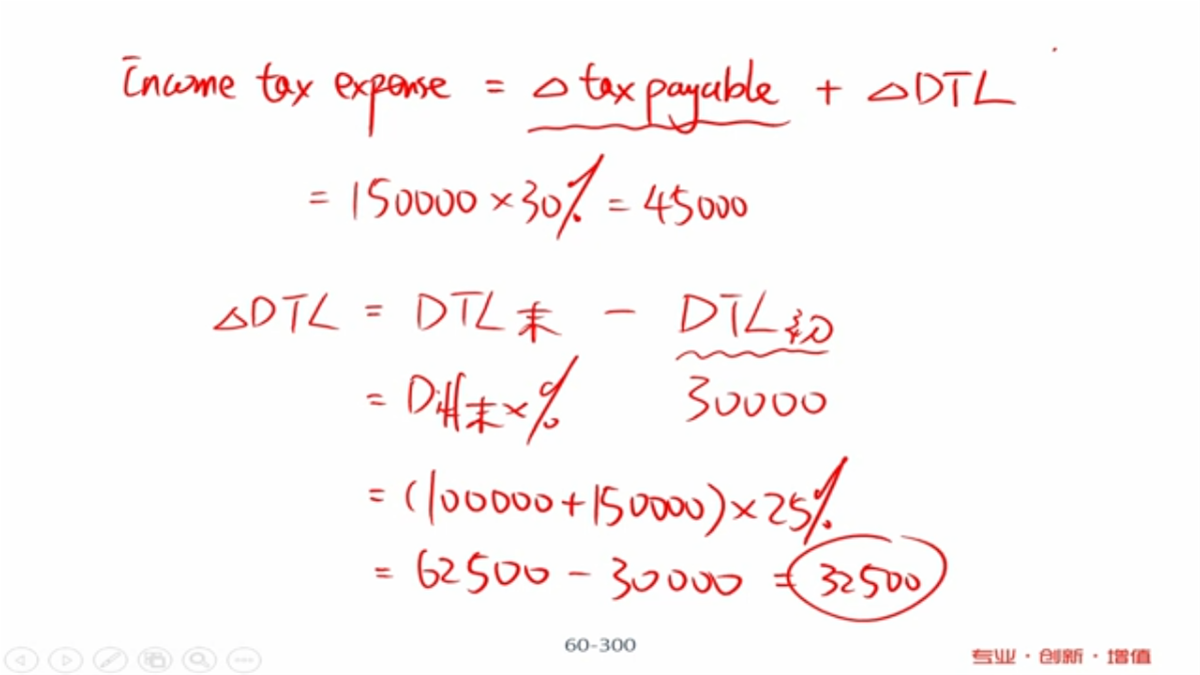 Income tax expense = △ tax payable + △DTL
= 150000 × 30% = 45000
△DTL = DTL末 - DTL初
= Diff末×% 30000
= (100000+150000)×25%
= 62500 - 30000 = 32500
60-300
专业·创新·增值